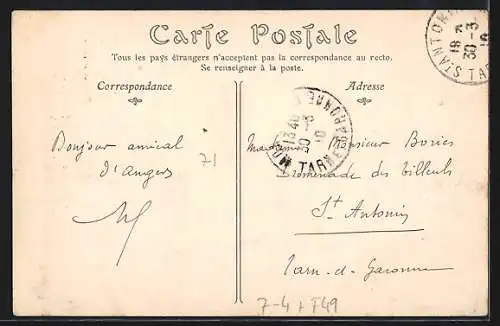 Carte Postale
Tous les pays étrangers n'acceptent pas la correspondance au recto.
Se renseigner à la poste.
Correspondance
Adresse
Bonjour amical
d'Angers
71
Monsieur Bories
Promenade des Tilleuls
St Antonin
Tarn-et-Garonne
7-4 + T49
ST ANTONIN
30-3
10
TARN
13 40
30-3
10
TARN ET GARONNE